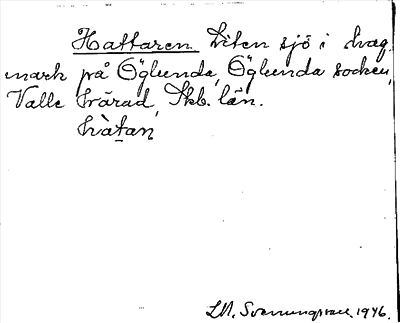 Hattaren Liten sjö i hag-
mark på Öglunda, Öglunda socken,
Valle härad, Skb. län.
hàtan
1946.